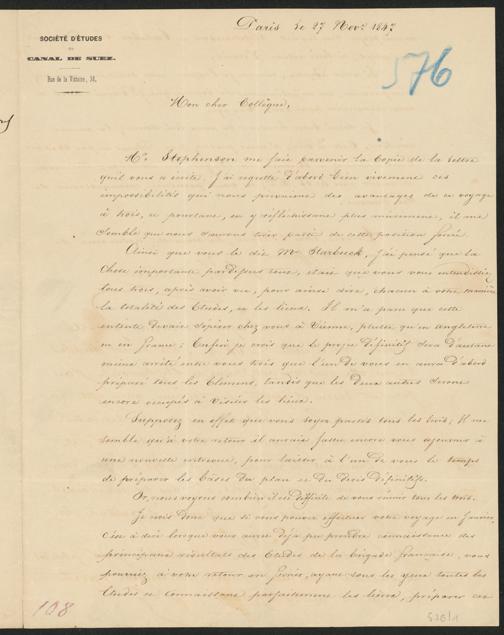 Paris le 27 Nov. 1847
SOCIÉTÉ D'ÉTUDES
DU
CANAL DE SUEZ.
Rue de la Victoire, 34.
576
Mon cher Collègue,
Mr. Stephenson me fait parvenir la Copie de la lettre
qu'il vous a écrite. J'ai regretté d'abord bien vivement ces
impossibilités qui nous privaient des avantages de ce voyage
à trois, et pourtant, en y réfléchissant plus mûrement, il me
semble que nous saurons tirer parti de cette position
Ainsi que vous le dit Mr. Starbuck, j'ai pensé que la
chose importante par dessus tout, était que vous vous entendissiez
tous trois, après avoir vu, pour ainsi dire, chacun à votre manière
la totalité des Etudes, et les lieux. Il m'a paru que cette
entente devait s'opérer chez vous à Vienne, plutôt qu'en Angleterre
ou en France; Enfin je crois que le projet définitif sera d'autant
mieux arrêté entre vous trois que l'un de vous en aura d'abord
préparé tous les Elémens, tandis que les deux autres seront
encore occupés à visiter les lieux.
Supposez en effet que vous soyez partis tous les trois; Il me
semble qu'à votre retour il aurait fallu encore vous ajourner à
une nouvelle entrevue, pour laisser à l'un de vous le temps
de préparer les bases du plan et du devis définitifs.
Or, nous voyons combien il est difficile de vous réunir tous les trois.
Je crois donc que si vous pouvez effectuer votre voyage en Janvier,
c'est à dire lorsque vous aurez déjà pu prendre connaissance des
principaux résultats des Etudes de la brigade française, vous
pourriez à votre retour en février, ayant sous les yeux toutes les
Etudes et connaissant parfaitement les lieux, préparer ces
108
576/1